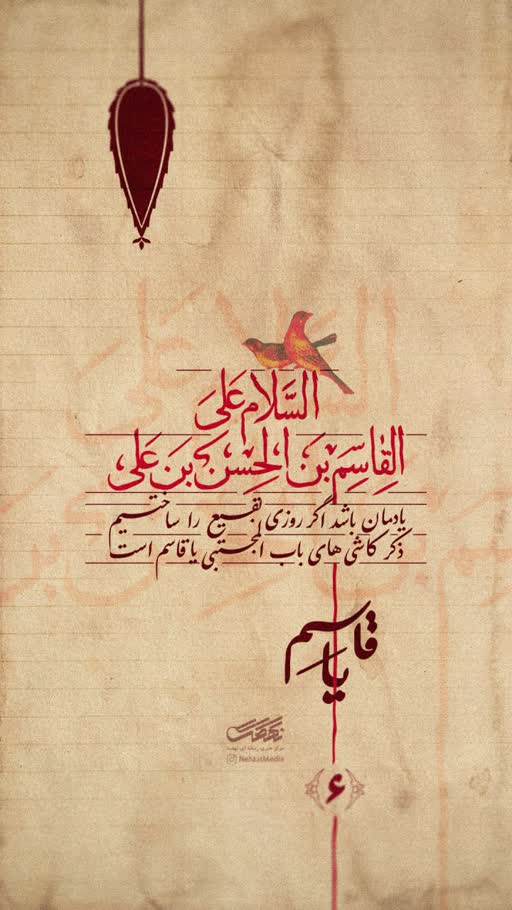 السَّلامُ عَلَى
القاسِمِ بنَ الحَسَنِ بنَ عَلی
یادمان باشد اگر روزی بقیع را ساختیم
ذکر کاشی های باب المجتبی یا قاسم است
یا قاسم
مرکز هنری رسانه ای نهضت
NehzatMedia
۶